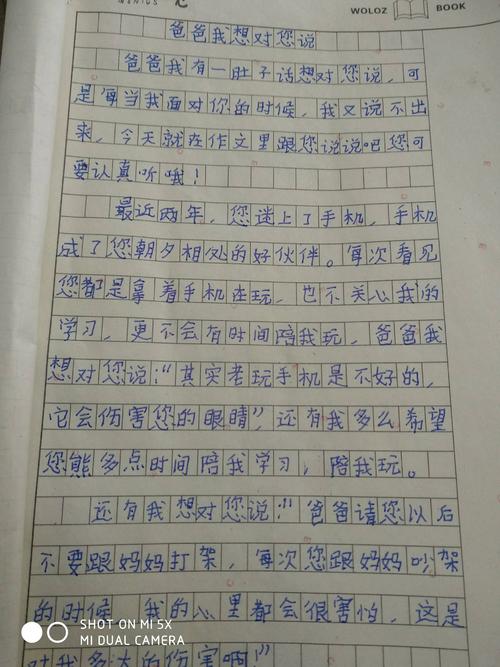 WOLOZ BOOK
爸爸我想对您说
爸爸我有一肚子话想对您说,可
是每当我面对你的时候,我又说不出
来,今天就在作文里跟您说说吧您可
要认真听哦!
最近两年,您迷上了手机,手机
成了您朝夕相处的好伙伴。每次看见
您都是拿着手机在玩,也不关心我的
学习,更不会有时间陪我玩,爸爸我
想对您说:“其实老玩手机是不好的,
它会伤害您的眼睛”,还有我多么希望
您熊多点时间陪我学习,陪我玩。
还有我想对您说:“爸爸请您以后
不要跟妈妈打架,每次您跟妈妈吵架
的时候,我的心里都会很害怕,这是
对我多大的伤害啊”
SHOT ON MI 5X
MI DUAL CAMERA